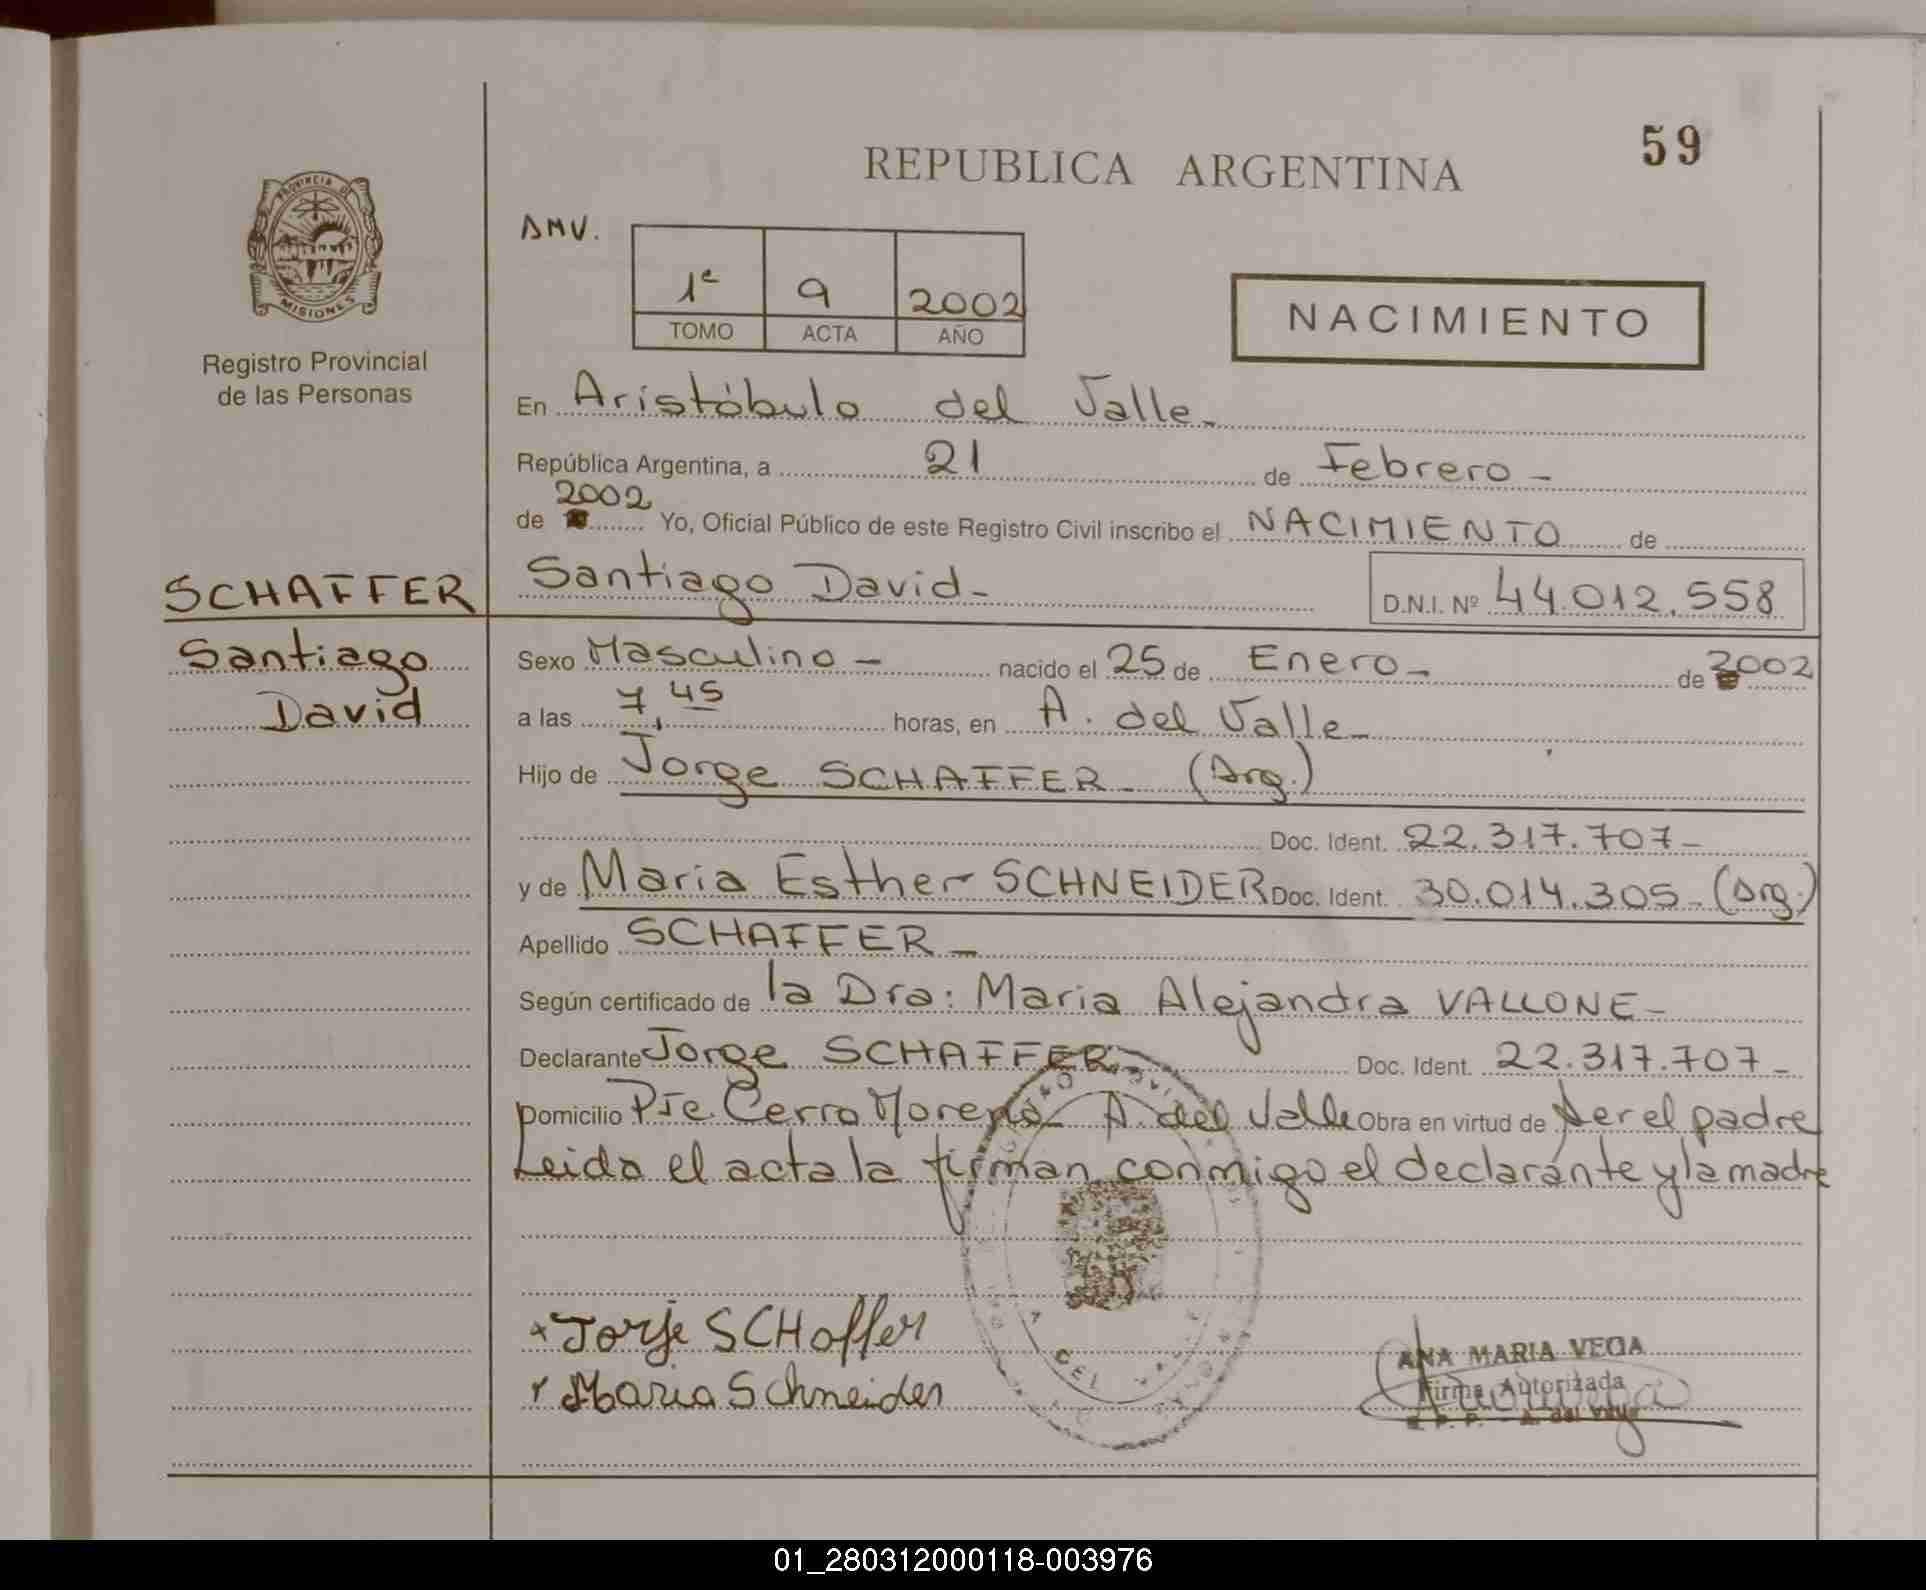 59
REPUBLICA ARGENTINA
PROVINCIA DE
MISIONES
Registro Provincial
de las Personas
AMV.
1º 9 2002
TOMO ACTA AÑO
NACIMIENTO
En Aristóbulo del Valle-
República Argentina, a 21 de Febrero-
de 2002 Yo, Oficial Público de este Registro Civil inscribo el NACIMIENTO de
SCHAFFER
Santiago
David
Santiago David- D.N.I. Nº 44.012.558
Sexo Masculino- nacido el 25 de Enero- de 2002
a las 7,45 horas, en A. del Valle-
Hijo de Jorge SCHAFFER- (Arg.)
Doc. Ident. 22.317.707-
y de Maria Esther SCHNEIDER Doc. Ident. 30.014.305-(Arg.)
Apellido SCHAFFER-
Según certificado de la Dra: Maria Alejandra VALLONE-
Declarante Jorge SCHAFFER- Doc. Ident. 22.317.707-
Domicilio Pje. Cerro Moreno- A. del Valle Obra en virtud de ser el padre
Leida el acta la firman conmigo el declarante y la madre
Jorje SCHaffer
Maria Schneider
ANA MARIA VEGA
Firma Autorizada
R. P. P. - A. del Valle
01_280312000118-003976